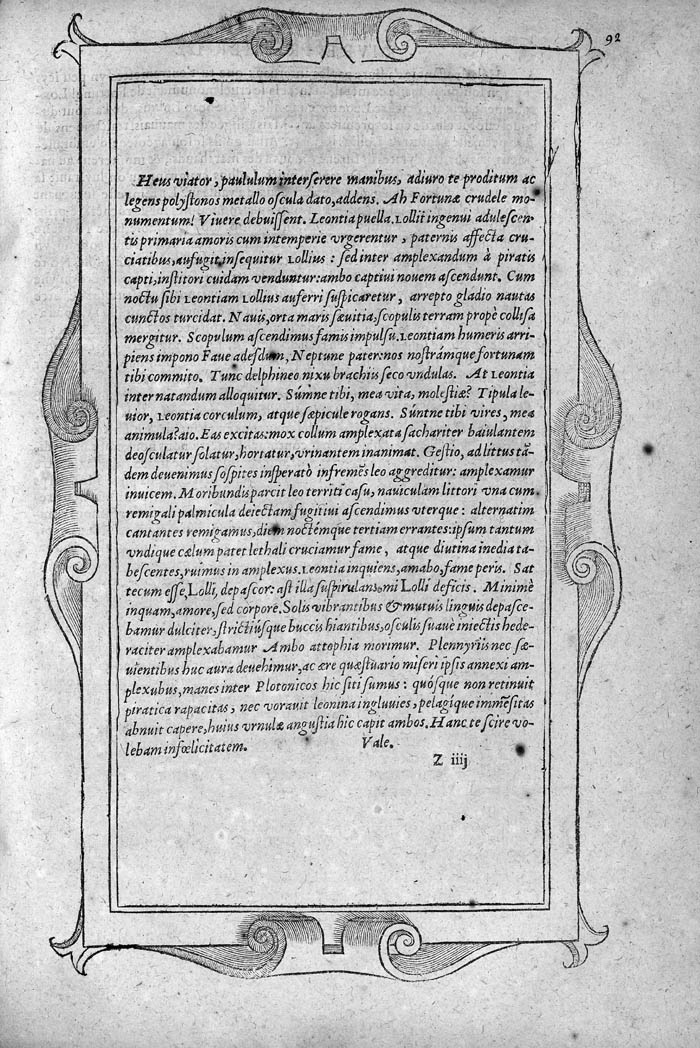 92
Heus viator, paululum interserere manibus, adiuro te proditum ac
legens polystonos metallo oscula dato, addens. Ah Fortunæ crudele mo-
numentum! Vivere debuissent. Leontia puella, Lollii ingenui adulescen-
tis primaria amoris cum intemperie vrgerentur, paternis affecta cru-
ciatibus, aufugit, insequitur Lollius: sed inter amplexandum à piratis
capti, institori cuidam venduntur: ambo captivi nouem ascendunt. Cum
noctu sibi Leontiam Lollius auferri suspicaretur, arrepto gladio nautas
cunctos turcidat. Nauis, orta maris sæuitia, scopulis terram propè collisa
mergitur. Scopulum ascendimus famis impulsu, Leontiam humeris arri-
piens impono Faue adesdum, Neptune pater: nos nostrámque fortunam
tibi commito. Tunc delphineo nixu brachiis seco vndulas. At Leontia
inter natandum alloquitur. Súmne tibi, mea vita, molestiæ? Tipula le-
uior, Leontia corculum, atque sæpicule rogans. Súntne tibi vires, mea
animula? aio. Eas excitas: mox collum amplexata sachariter baiulantem
deosculatur solatur, hortatur, vrinantem inanimat. Gestio, ad littus tā-
dem deuenimus sospites insperatò infremēs leo aggreditur: amplexamur
inuicem. Moribundis parcit leo territi casu, nauiculam littori vna cum
remigali palmicula deiectam fugitiui ascendimus vterque: alternatim
cantantes remigamus, diem noctémque tertiam errantes: ipsum tantum
vndique cælum patet lethali cruciamur fame, atque diutina inedia ta-
bescentes, ruimus in amplexus. Leontia inquiens, amabo, fame peris. Sat
tecum esse, Lolli, depascor: ast illa suspirulans, mi Lolli deficis. Minimè
inquam, amore, sed corpore. Solis vibrantibus & mutuis linguis depasce-
bamur dulciter, strictiúsque buccis hiantibus, osculis suauè iniectis hede-
raciter amplexabamur Ambo attophia morimur. Plennyriis nec sæ-
uientibus huc aura deuehimur, ac ære quæstuario miseri ipsis annexi am-
plexubus, manes inter Plotonicos hic siti sumus: quósque non retinuit
piratica rapacitas, nec vorauit leonina ingluuies, pelagíque immēsitas
abnuit capere, huius vrnulæ angustia hic capit ambos. Hanc te scire vo-
lebam infœlicitatem. Vale.
Z iiij